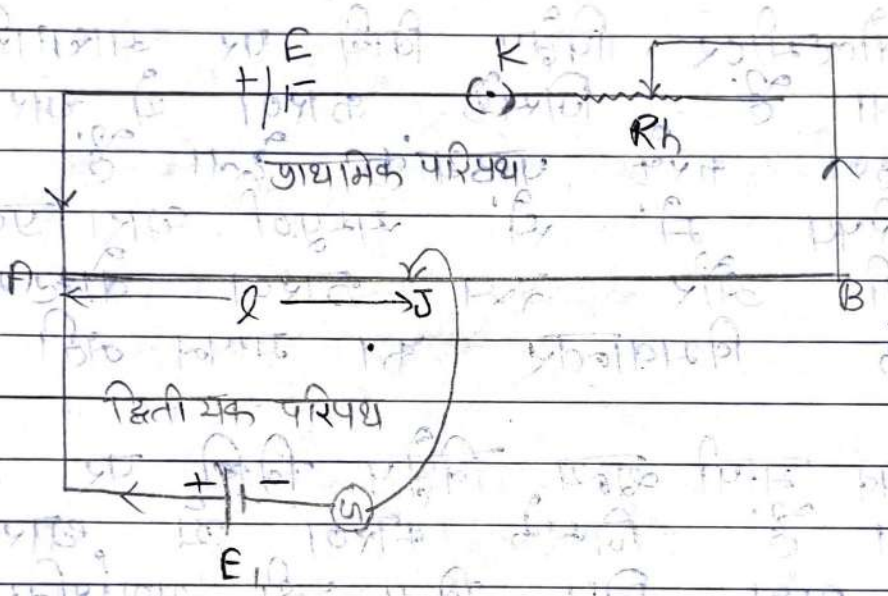 E K
+ -
Rh
प्राथमिक परिपथ
A l J B
द्वितीयक परिपथ
+ -
G
E₁